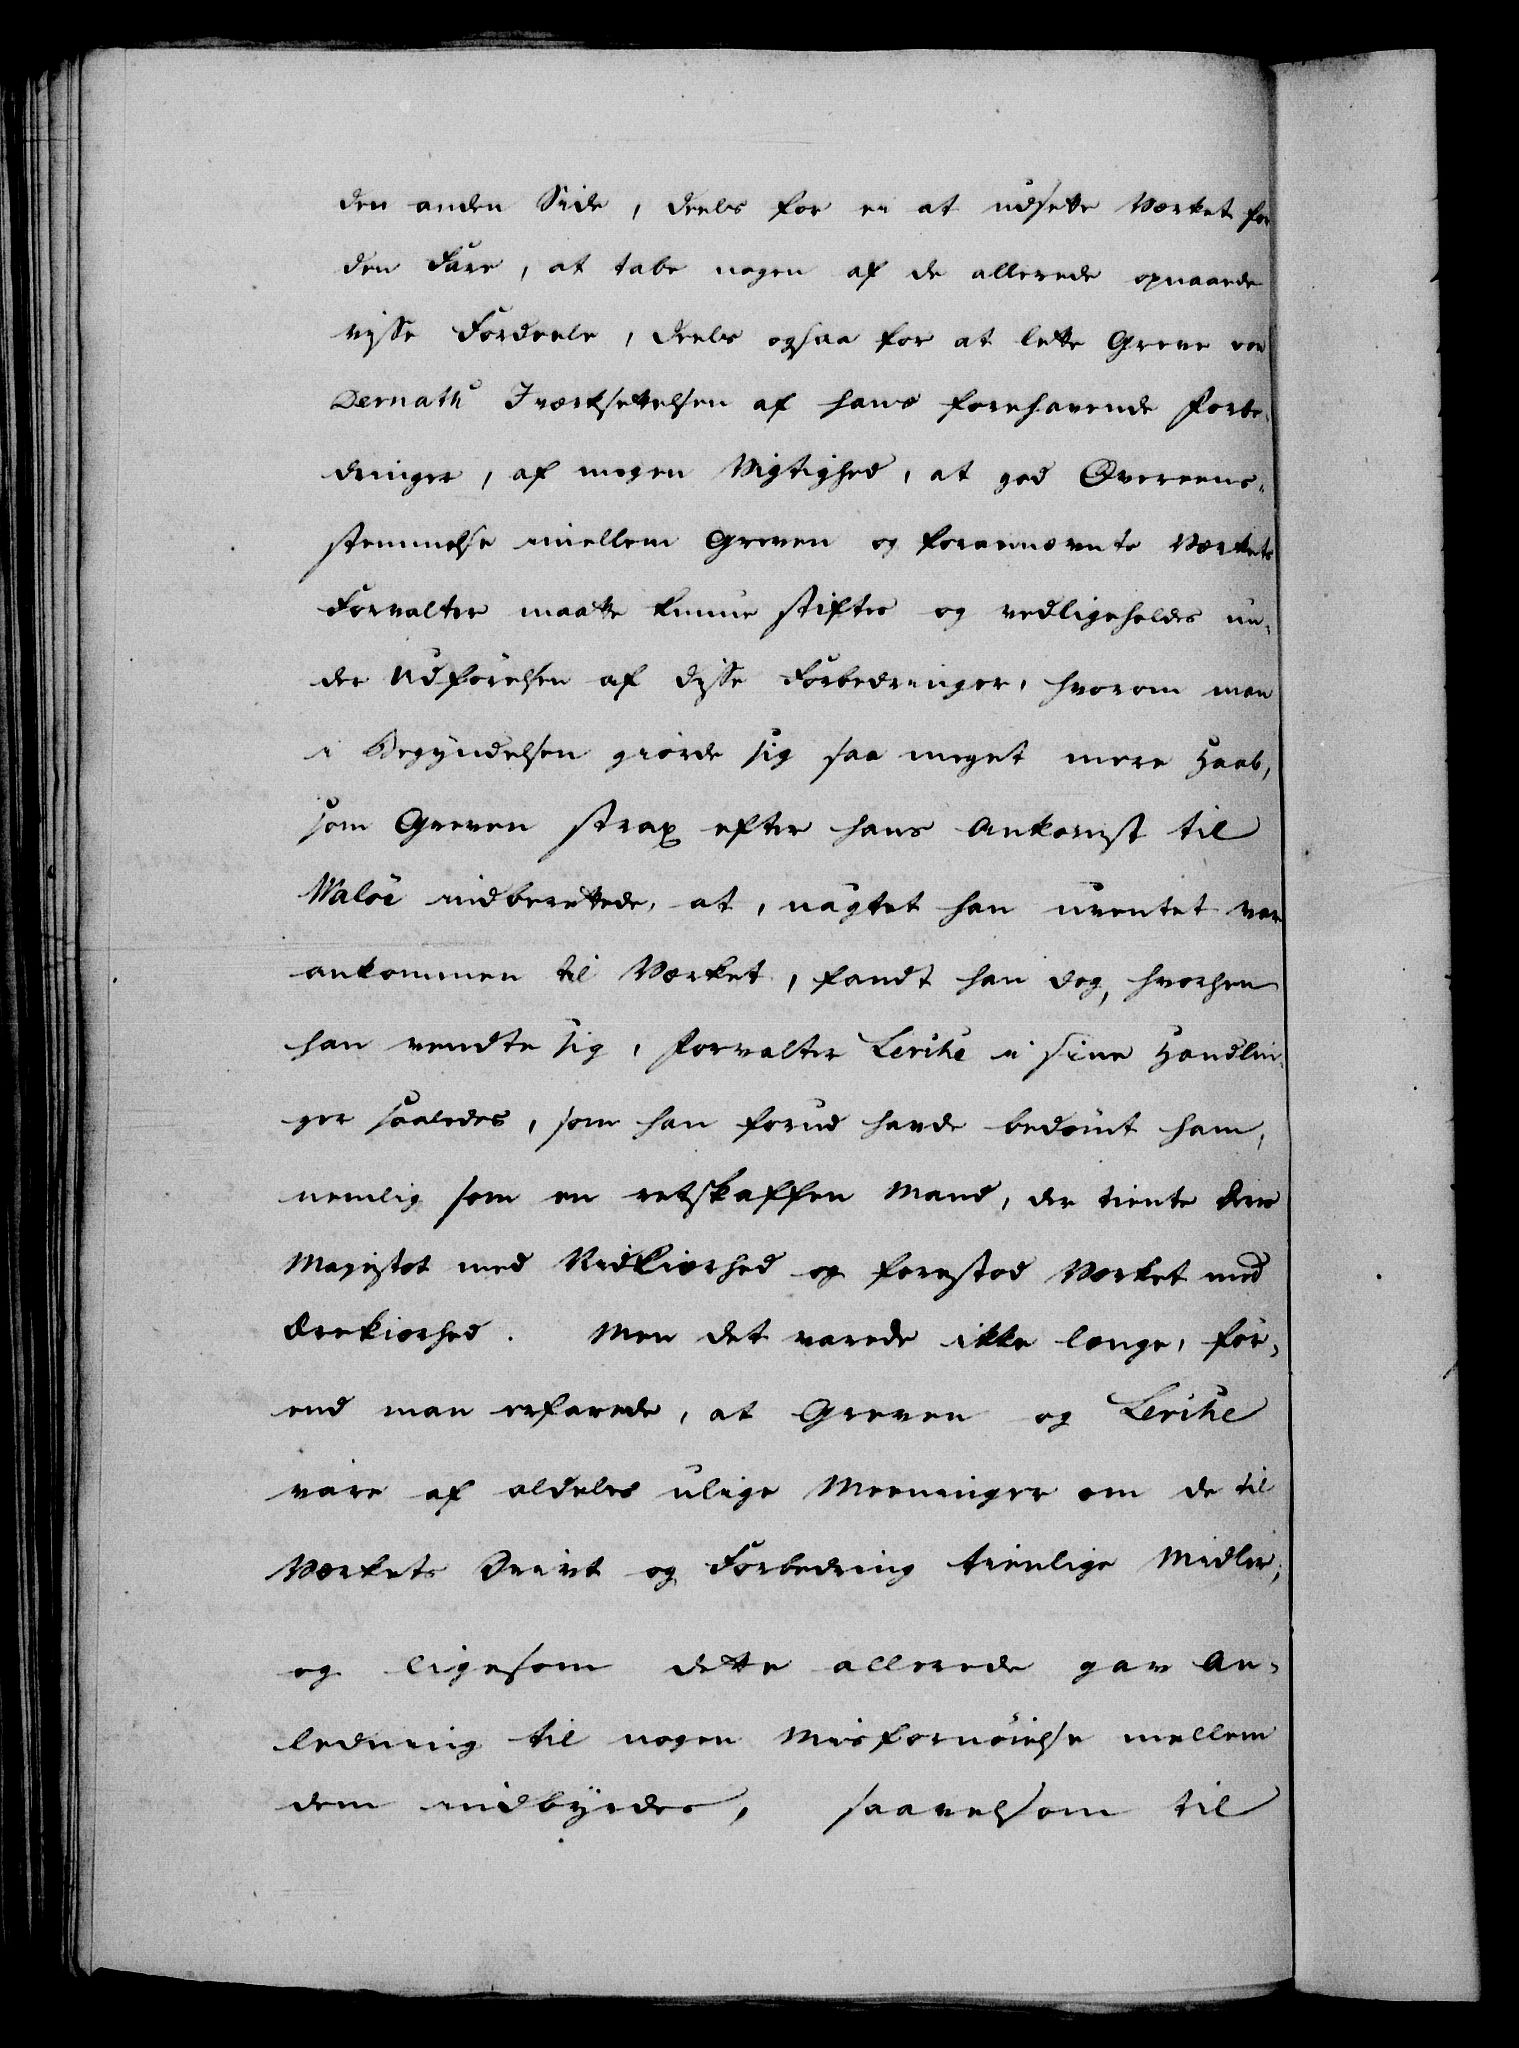 den anden Side, deels for ei at udsette Værket for
den Fare, at tabe nogen af de allerede opnaaede
visse Fordeele, deels ogsaa for at lette Greve von
Dernath Iværksettelsen af hans forehavende Forbe-
dringer, af megen Vigtighed, at god Overeens-
stemmelse imellem Greven og forannævnte Værkets
Forvalter maatte kunne stiftes og vedligeholdes un-
der Udförelsen af disse Forbedringer, hvorom man
i Begyndelsen giorde sig saa meget mere Haab,
som Greven strax efter hans Ankomst til
Walöe indberettede, at, uagtet han uventet var
ankommen til Værket, fandt han dog, hvorhen
han vendte sig, Forvalter Lerche i sine Handlin-
ger saaledes, som han forud havde bedömt ham,
nemlig som en retskaffen Mand, der tiente Deres
Majestæt med Nidkierhed og forestod Værket med
Ærekierhed. Men det varede ikke længe, för-
end man erfarede, at Greven og Lerche
vare af aldeles ulige Meeninger om de til
Værkets Drivt og Forbedring tienlige Midler;
og ligesom dette allerede gav An-
ledning til nogen Misfornöielse mellem
dem indbyrdes, saavelsom til